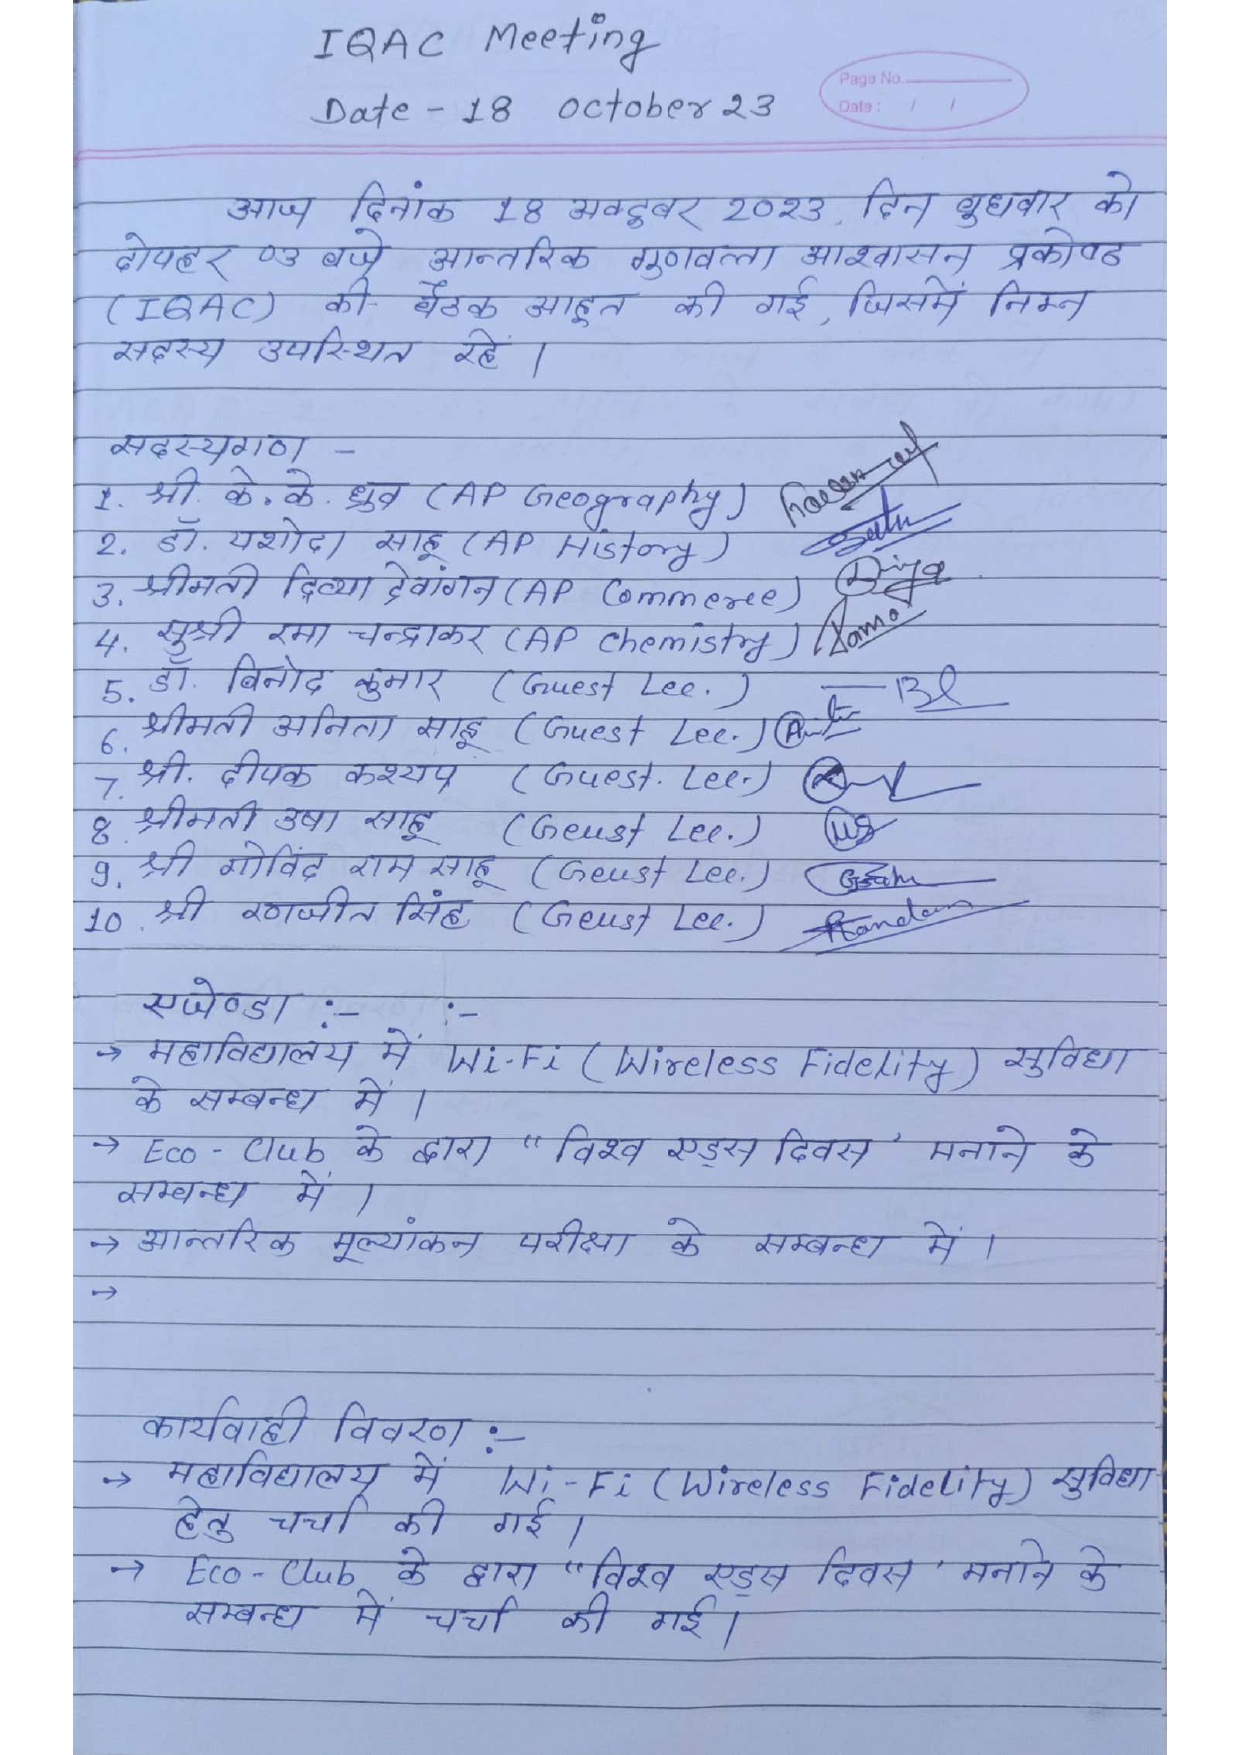 IQAC Meeting
Date - 18 October 23
Page No.
Date : / /
आज दिनांक 18 अक्टूबर 2023, दिन बुधवार को
दोपहर 03 बजे आन्तरिक गुणवत्ता आश्वासन प्रकोष्ठ
(IQAC) की बैठक आहूत की गई, जिसमें निम्न
सदस्य उपस्थित रहें ।
सदस्यगण -
1. श्री. के. के. ध्रुव (AP Geography)
2. डॉ. यशोदा साहू (AP History)
3. श्रीमती दिव्या देवांगन (AP Commerce) Divya
4. सुश्री रमा चन्द्राकर (AP Chemistry) Rama
5. डॉ. विनोद कुमार (Guest Lec.)
6. श्रीमती अनिता साहू (Guest Lec.)
7. श्री. दीपक कश्यप (Guest. Lec.)
8. श्रीमती उषा साहू (Geust Lec.)
9. श्री गोविंद राम साहू (Geust Lec.)
10. श्री रणजीत सिंह (Geust Lec.)
एजेण्डा :- :-
→ महाविद्यालय में Wi-Fi (Wireless Fidelity) सुविधा
के सम्बन्ध में ।
→ Eco - Club के द्वारा “विश्व एड्स दिवस ' मनाने के
सम्बन्ध में ।
→ आन्तरिक मूल्यांकन परीक्षा के सम्बन्ध में ।
→
कार्यवाही विवरण :-
→ महाविद्यालय में Wi-Fi (Wireless Fidelity) सुविधा
हेतु चर्चा की गई ।
→ Eco - Club के द्वारा “विश्व एड्स दिवस ' मनाने के
सम्बन्ध में चर्चा की गई ।